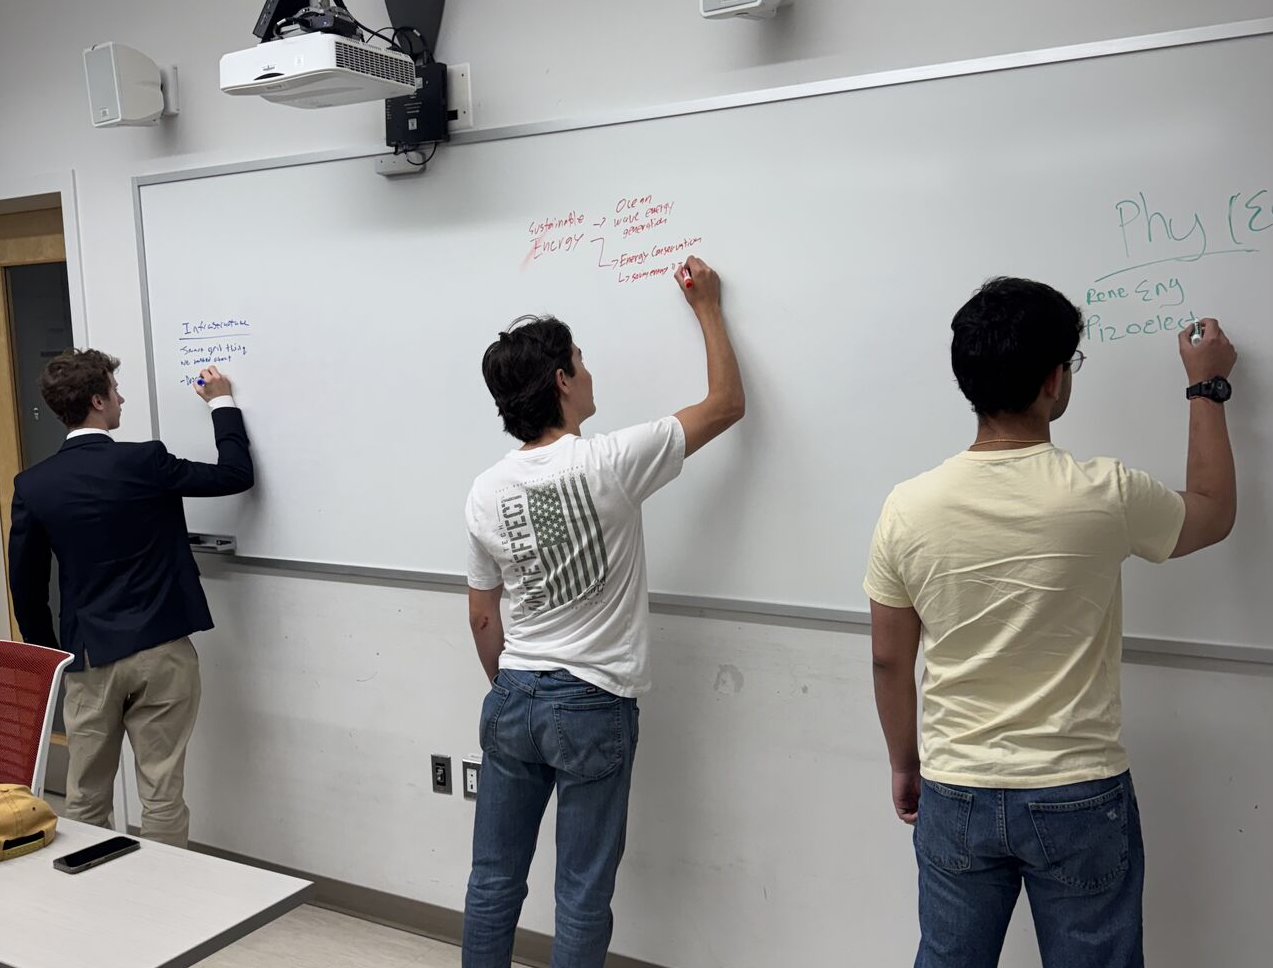 Infrastructure
Smart grid thing
we talked about
Sustainable
Energy
Ocean
wave energy
generation
Energy Conservation
Phy (E
Rene Eng
Pizoelect
EFFECT